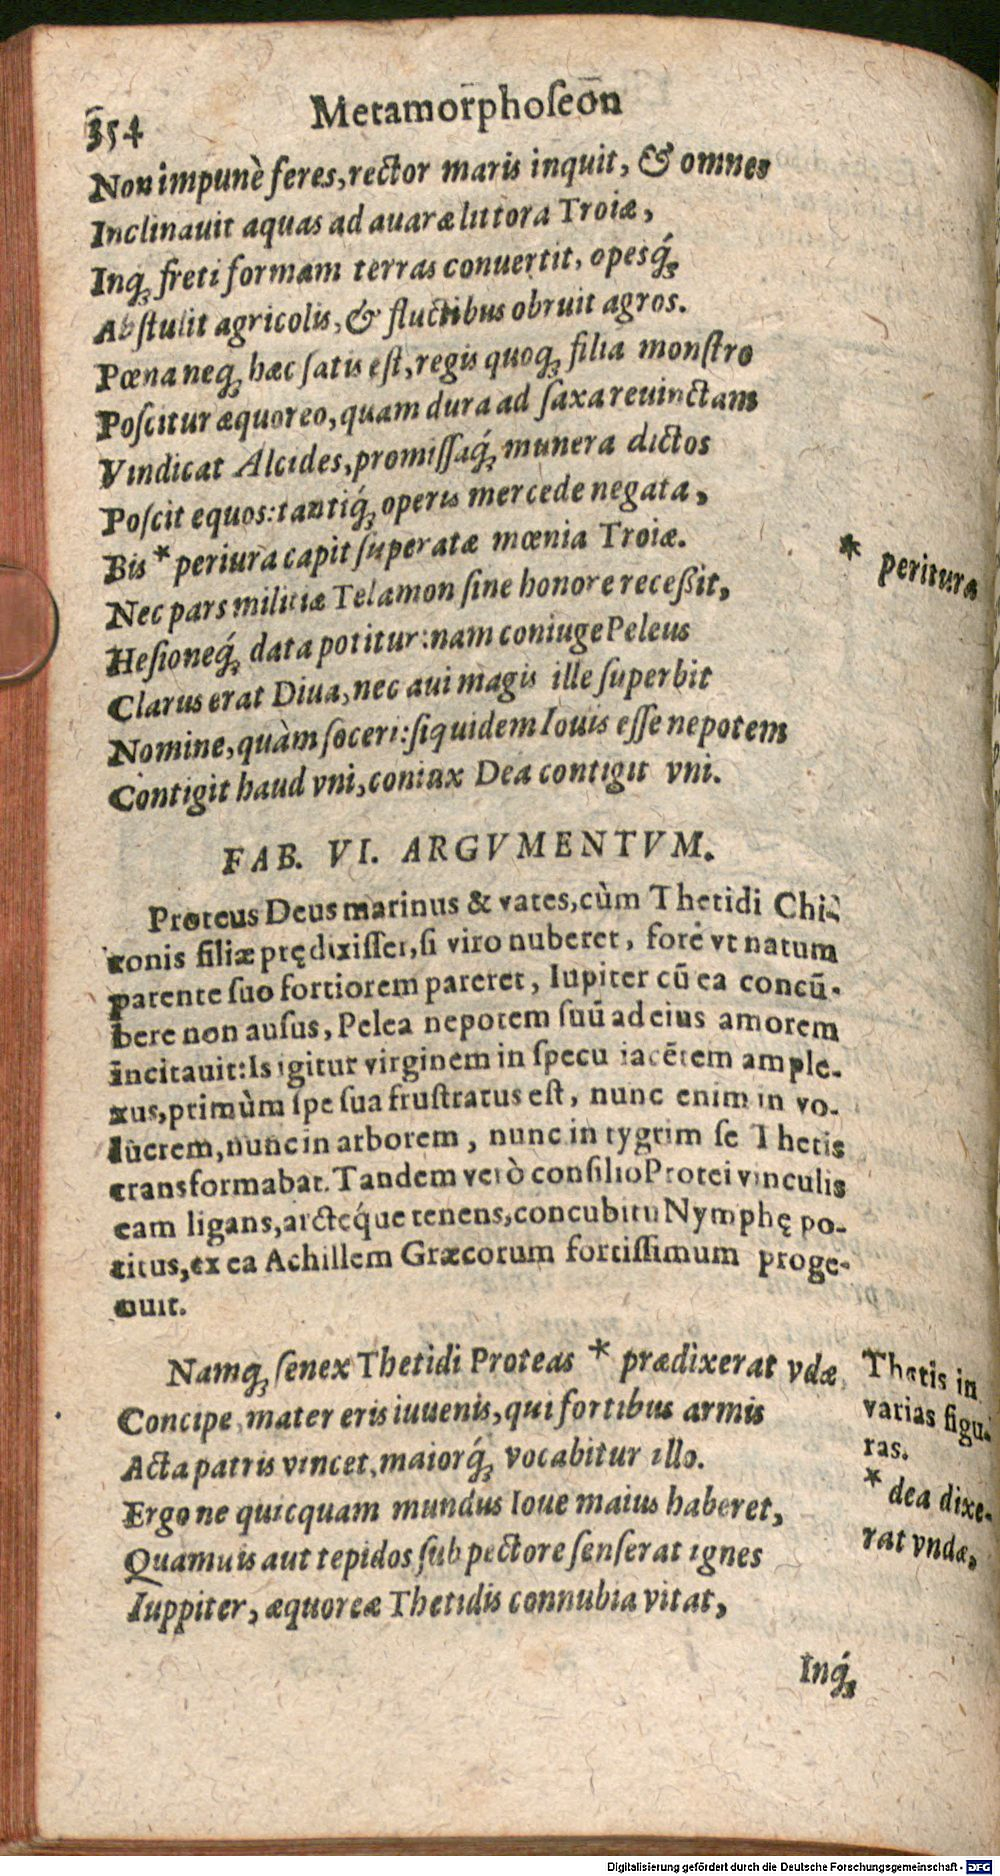 354 Metamorphoſeon
Non impunè feres, rector maris inquit, & omnes
Inclinauit aquas ad auaræ littora Troiæ,
Inq́ꝫ freti formam terras conuertit, opesq́ꝫ
Abſtulit agricolis, & fluctibus obruit agros.
Pœna neqꝫ hæc ſatis eſt, regis quoqꝫ filia monſtro
Poſcitur æquoreo, quam dura ad ſaxa reuinctam
Vindicat Alcides, promiſſaq́ꝫ munera dictos
Poſcit equos: tantiq́ꝫ operis mercede negata,
Bis * periura capit ſuperatæ mœnia Troiæ.
* peritura
Nec pars militiæ Telamon ſine honore receßit,
Heſioneq́ꝫ data potitur: nam coniuge Peleus
Clarus erat Diua, nec aui magis ille ſuperbit
Nomine, quàm ſoceri: ſiquidem Iouis eſſe nepotem
Contigit haud vni, coniux Dea contigit vni.
FAB. VI. ARGVMENTVM.
Proteus Deus marinus & vates, cùm Thetidi Chi-
ronis filiæ prędixiſſet, ſi viro nuberet, fore vt natum
parente ſuo fortiorem pareret, Iupiter cū ea concū-
bere non auſus, Pelea nepotem ſuū ad eius amorem
incitauit: Is igitur virginem in ſpecu iacētem ample-
xus, primùm ſpe ſua fruſtratus eſt, nunc enim in vo-
lucrem, nunc in arborem, nunc in tygrim ſe Thetis
transformabat. Tandem verò conſilio Protei vinculis
eam ligans, arctéque tenens, concubitu Nymphę po-
titus, ex ea Achillem Græcorum fortiſſimum proge-
nuit.
Namqꝫ ſenex Thetidi Proteas * prædixerat vdæ,
Concipe, mater eris iuuenis, qui fortibus armis
Acta patris vincet, maiorq́ꝫ vocabitur illo.
Ergo ne quicquam mundus Ioue maius haberet,
Quamuis aut tepidos ſub pectore ſenſerat ignes
Iuppiter, æquoreæ Thetidis connubia vitat,
Thetis in
varias figu-
ras.
* dea dixe-
rat vndæ,
Inq́ꝫ
Digitalisierung gefördert durch die Deutsche Forschungsgemeinschaft - DFG